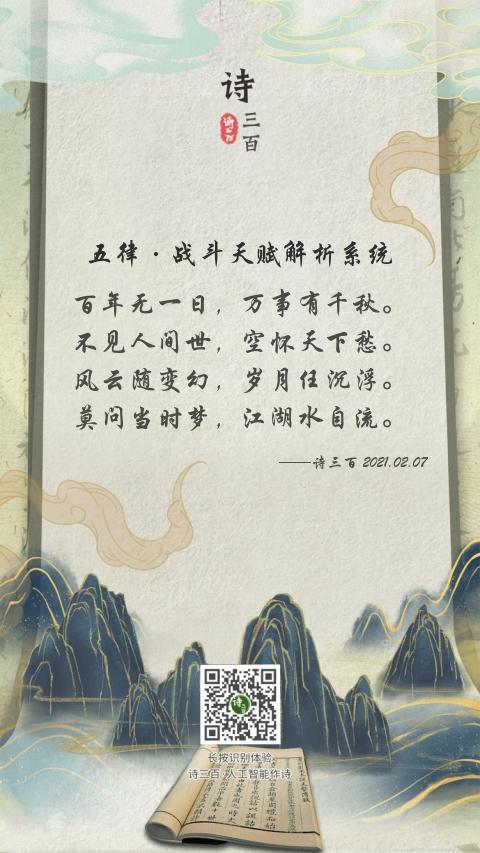 诗
三百
五律·战斗天赋解析系统
百年无一日，万事有千秋。
不见人间世，空怀天下愁。
风云随变幻，岁月任沉浮。
莫问当时梦，江湖水自流。
——诗三百 2021.02.07
长按识别体验
诗三百·人工智能作诗